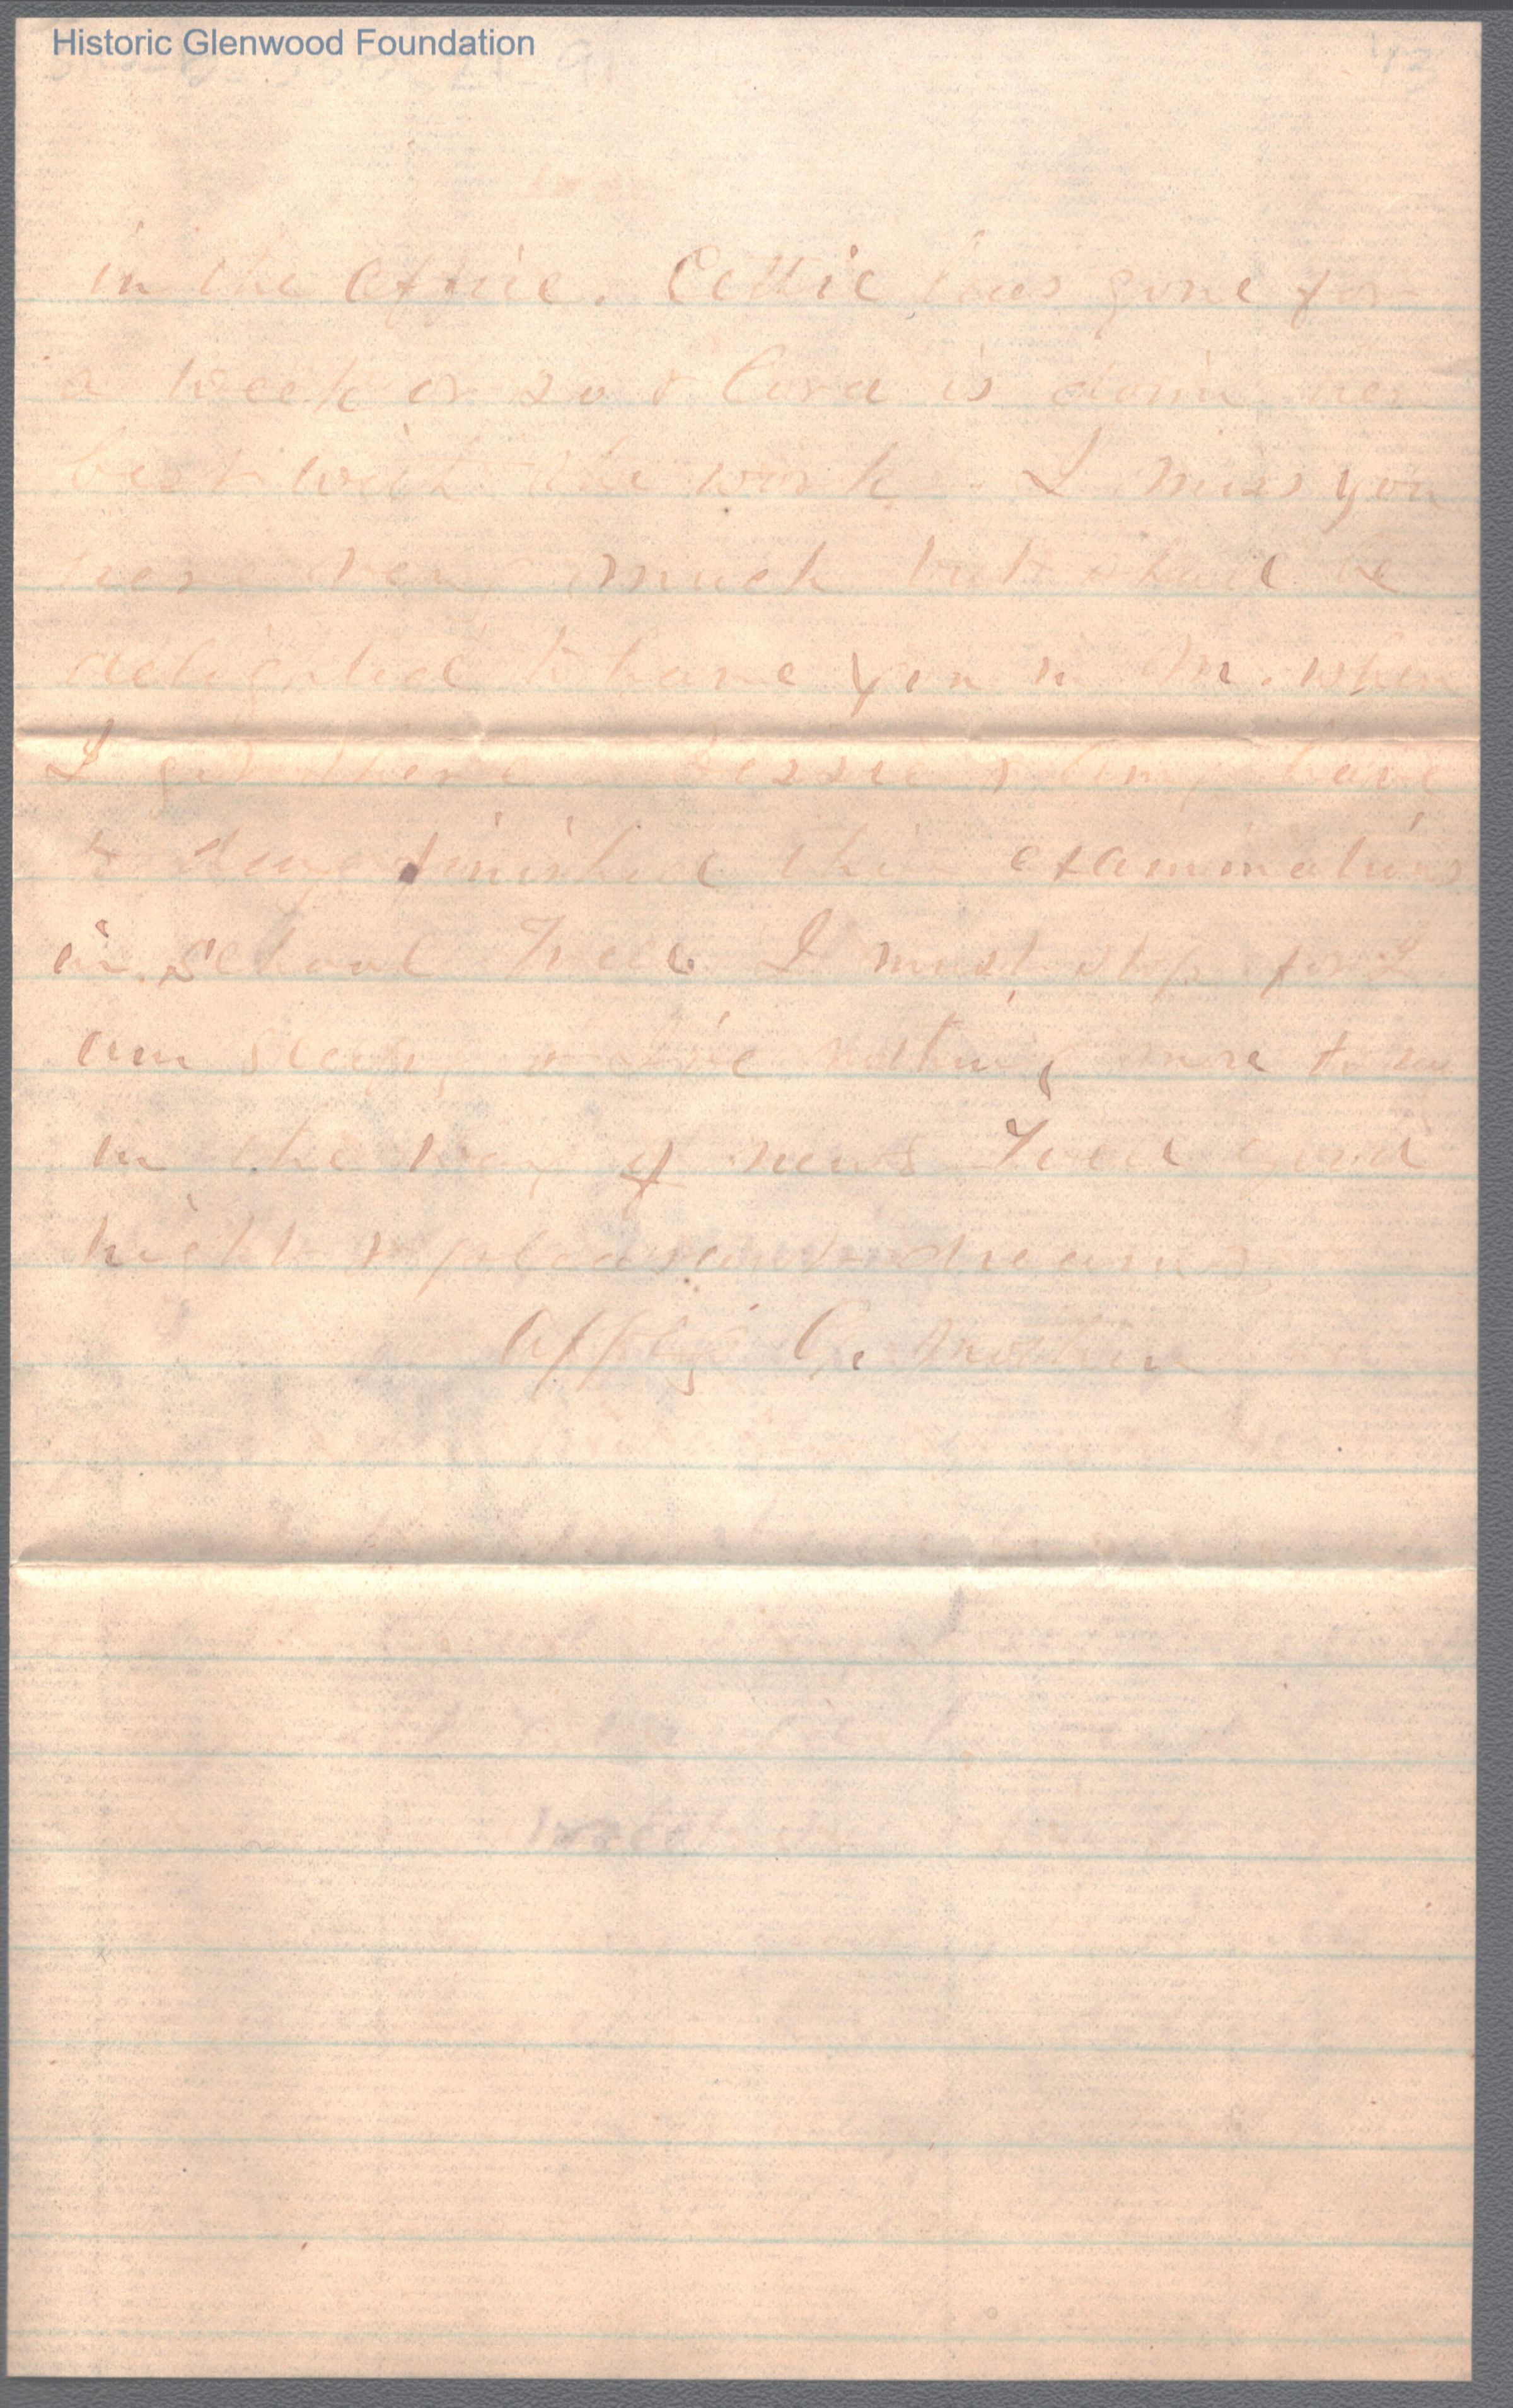 Historic Glenwood Foundation
in the office. Lettie has gone for
a week or so & Cora is doing her
best with the work. I miss you
here very much but shall be
delighted to have you in M. when
I get there. Bessie & Amy have
to day finished their examinations
in school. Well I must stop for I
am sleepy & have nothing more to say
in the way of news. Well good
night & pleasant dreams.
Affly C. Mother